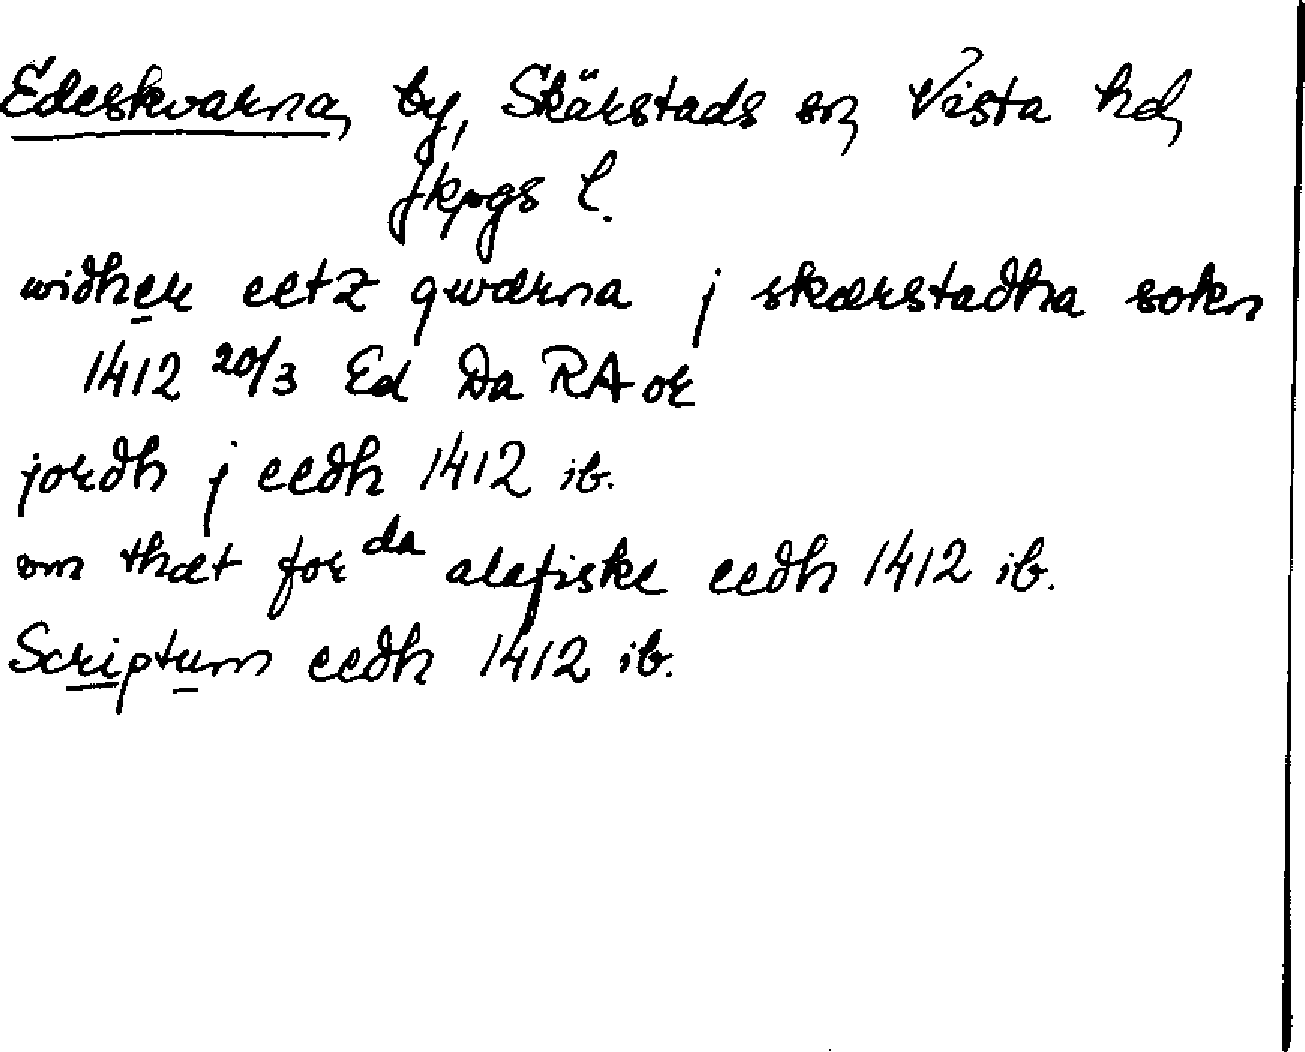 Edeskvarna, by, Skärstads sn, Vista hd,
Jkpgs l.
widher eetz qwærna j skærstadha sokn
1412 20/3 Ed Da RA or
jordh j eedh 1412 ib.
om thæt for da alafiske eedh 1412 ib.
Scriptum eedh 1412 ib.